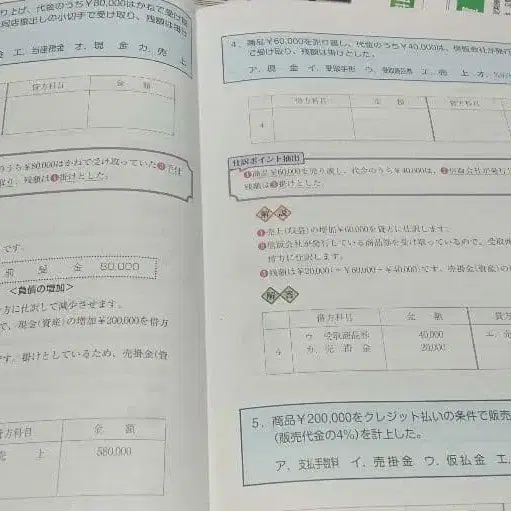 り上げ、代金のうち¥80,000はかねて受け取
店振出しの小切手で受け取り、残額は掛け
エ. 当座預金 オ. 現 金 カ. 売 上
借方科目 金 額
のうち¥80,000はかねて受け取っていた❷手付
取り、残額は❹掛けとした。
です。
前 受 金 80,000
<負債の増加>
方に仕訳して減少させます。
で、現金(資産)の増加¥200,000を借方
です。掛けとしているため、売掛金(資
貸方科目 金 額
売 上 580,000
4. 商品¥60,000を売り渡し、代金のうち¥40,000は、信販会社が発行
で受け取り、残額は掛けとした。
ア. 現 金 イ. 受取手形 ウ. 受取商品券 エ. 売 上 オ.
借方科目 金 額 貸方科目
4
仕訳ポイント抽出
❶商品¥60,000を売り渡し、代金のうち¥40,000は、❷信販会社が発行し
残額は❸掛けとした。
解 説
❶売上(収益)の増加¥60,000を貸方に仕訳します。
❷信販会社が発行している商品券を受け取っているので、受取商
借方に仕訳します。
❸残額は¥20,000(=¥60,000-¥40,000)です。売掛金(資産)の
解 答
借方科目 金 額 貸方
4 ウ. 受取商品券 40,000 エ. 売
カ. 売 掛 金 20,000
5. 商品¥200,000をクレジット払いの条件で販売
(販売代金の4%)を計上した。
ア. 支払手数料 イ. 売掛金 ウ. 仮払金 エ.